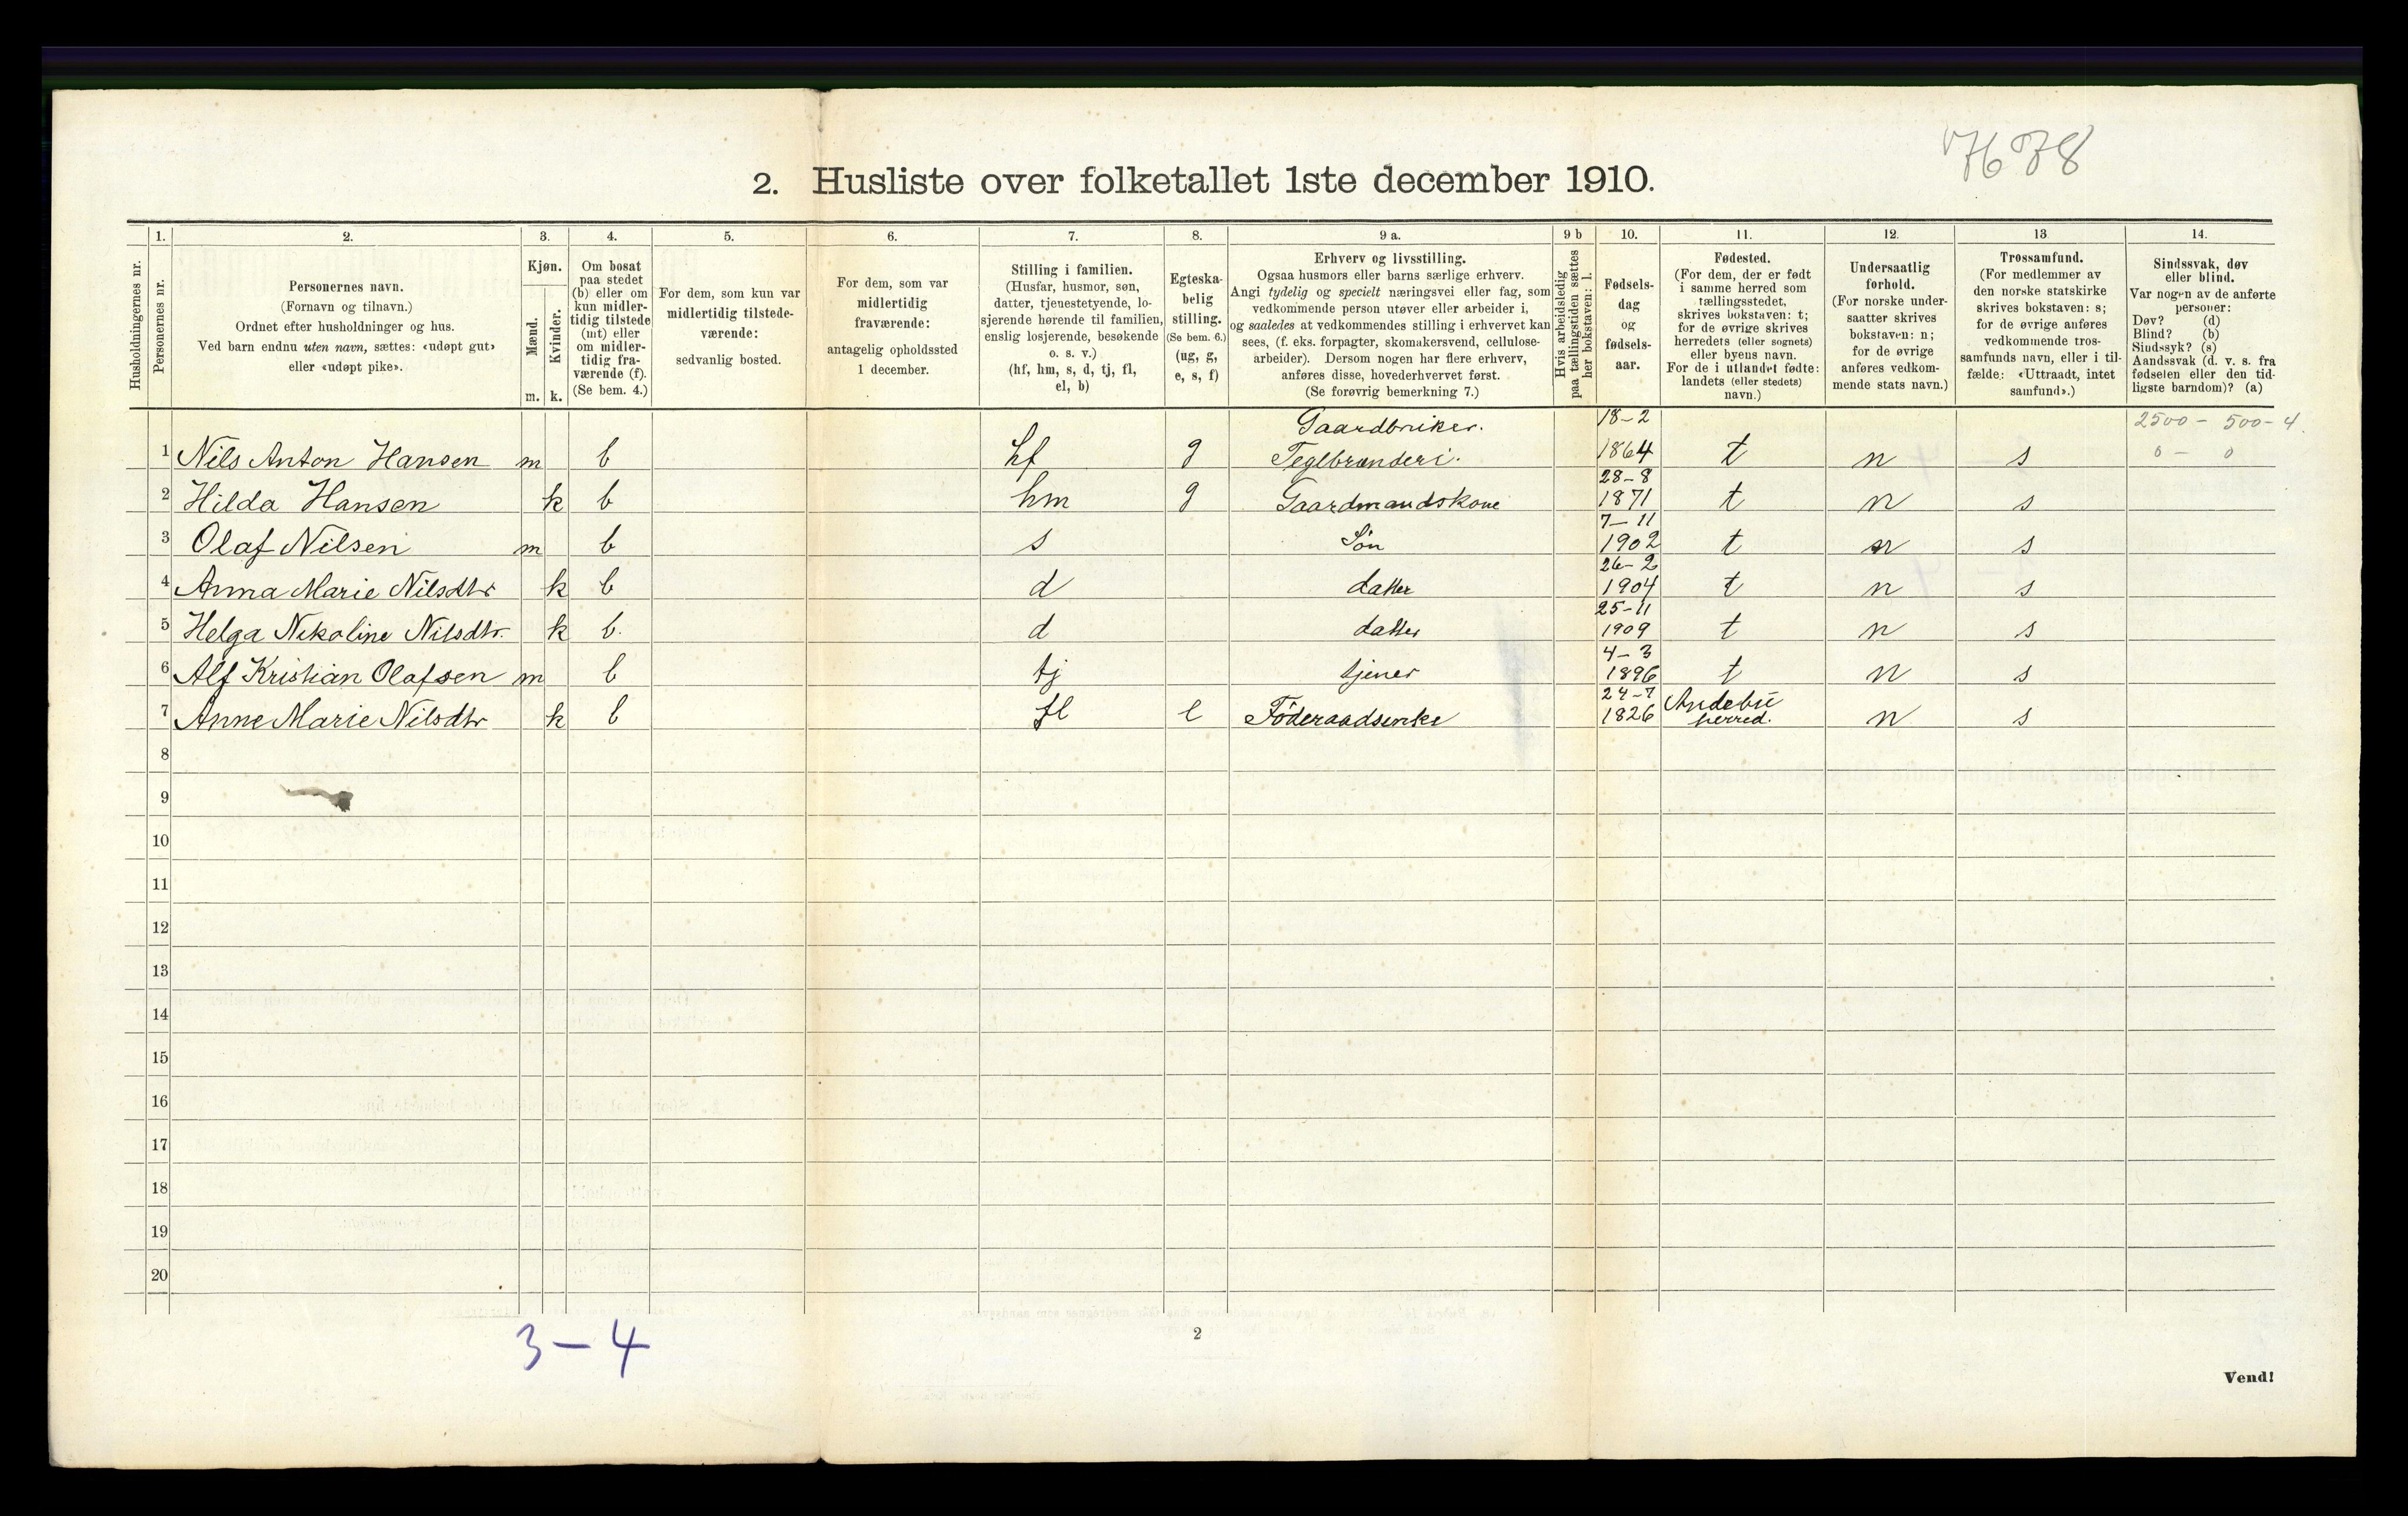 7678
2. Husliste over folketallet 1ste december 1910.
1. 2. 3. 4. 5. 6. 7. 8. 9 a. 9 b 10. 11. 12. 13 14.
Husholdningernes nr.
Personernes nr.
Personernes navn.
(Fornavn og tilnavn.)
Ordnet efter husholdninger og hus.
Ved barn endnu uten navn, sættes: «udøpt gut»
eller «udøpt pike».
Kjøn.
Mænd.
Kvinder.
m. k.
Om bosat
paa stedet
(b) eller om
kun midler-
tidig tilstede
(mt) eller
om midler-
tidig fra-
værende (f).
(Se bem. 4.)
For dem, som kun var
midlertidig tilstede-
værende:
sedvanlig bosted.
For dem, som var
midlertidig
fraværende:
antagelig opholdssted
1 december.
Stilling i familien.
(Husfar, husmor, søn,
datter, tjenestetyende, lo-
sjerende hørende til familien,
enslig losjerende, besøkende
o. s. v.)
(hf, hm, s, d, tj, fl,
el, b)
Egteska-
belig
stilling.
(Se bem. 6.)
(ug, g,
e, s, f)
Erhverv og livsstilling.
Ogsaa husmors eller barns særlige erhverv.
Angi tydelig og specielt næringsvei eller fag, som
vedkommende person utøver eller arbeider i,
og saaledes at vedkommendes stilling i erhvervet kan
sees, (f. eks. forpagter, skomakersvend, cellulose-
arbeider). Dersom nogen har flere erhverv,
anføres disse, hovederhvervet først.
(Se forøvrig bemerkning 7.)
Hvis arbeidsledig
paa tællingstiden sættes
her bokstaven: l.
Fødsels-
dag
og
fødsels-
aar.
Fødested.
(For dem, der er født
i samme herred som
tællingsstedet,
skrives bokstaven: t;
for de øvrige skrives
herredets (eller sognets)
eller byens navn.
For de i utlandet fødte:
landets (eller stedets)
navn.)
Undersaatlig
forhold.
(For norske under-
saatter skrives
bokstaven: n;
for de øvrige
anføres vedkom-
mende stats navn.)
Trossamfund.
(For medlemmer av
den norske statskirke
skrives bokstaven: s;
for de øvrige anføres
vedkommende tros-
samfunds navn, eller i til-
fælde: «Uttraadt, intet
samfund».)
Sindssvak, døv
eller blind.
Var nogen av de anførte
personer:
Døv? (d)
Blind? (b)
Sindssyk? (s)
Aandssvak (d. v. s. fra
fødselen eller den tid-
ligste barndom)? (a)
Gaardbruker. 18-2 2500 - 500-4.
1 Nils Anton Hansen m b hf g Teglbrænderi. 1864 t n s 0 - 0
28-8
2 Hilda Hansen k b hm g Gaardmandskone 1871 t n s
7-11
3 Olaf Nilsen m b s Søn 1902 t n s
26-2
4 Anna Marie Nilsdtr k b d datter 1904 t n s
25-11
5 Helga Nikoline Nilsdtr. k b. d datter 1909 t n s
4-3
6 Alf Kristian Olafsen m b tj tjener 1896 t n s
24-7 Andebu
7 Anne Marie Nilsdtr k b fl e Föderaadsenke 1826 herred. n s
8
9
10
11
12
13
14
15
16
17
18
19
20
3-4
2
Vend!